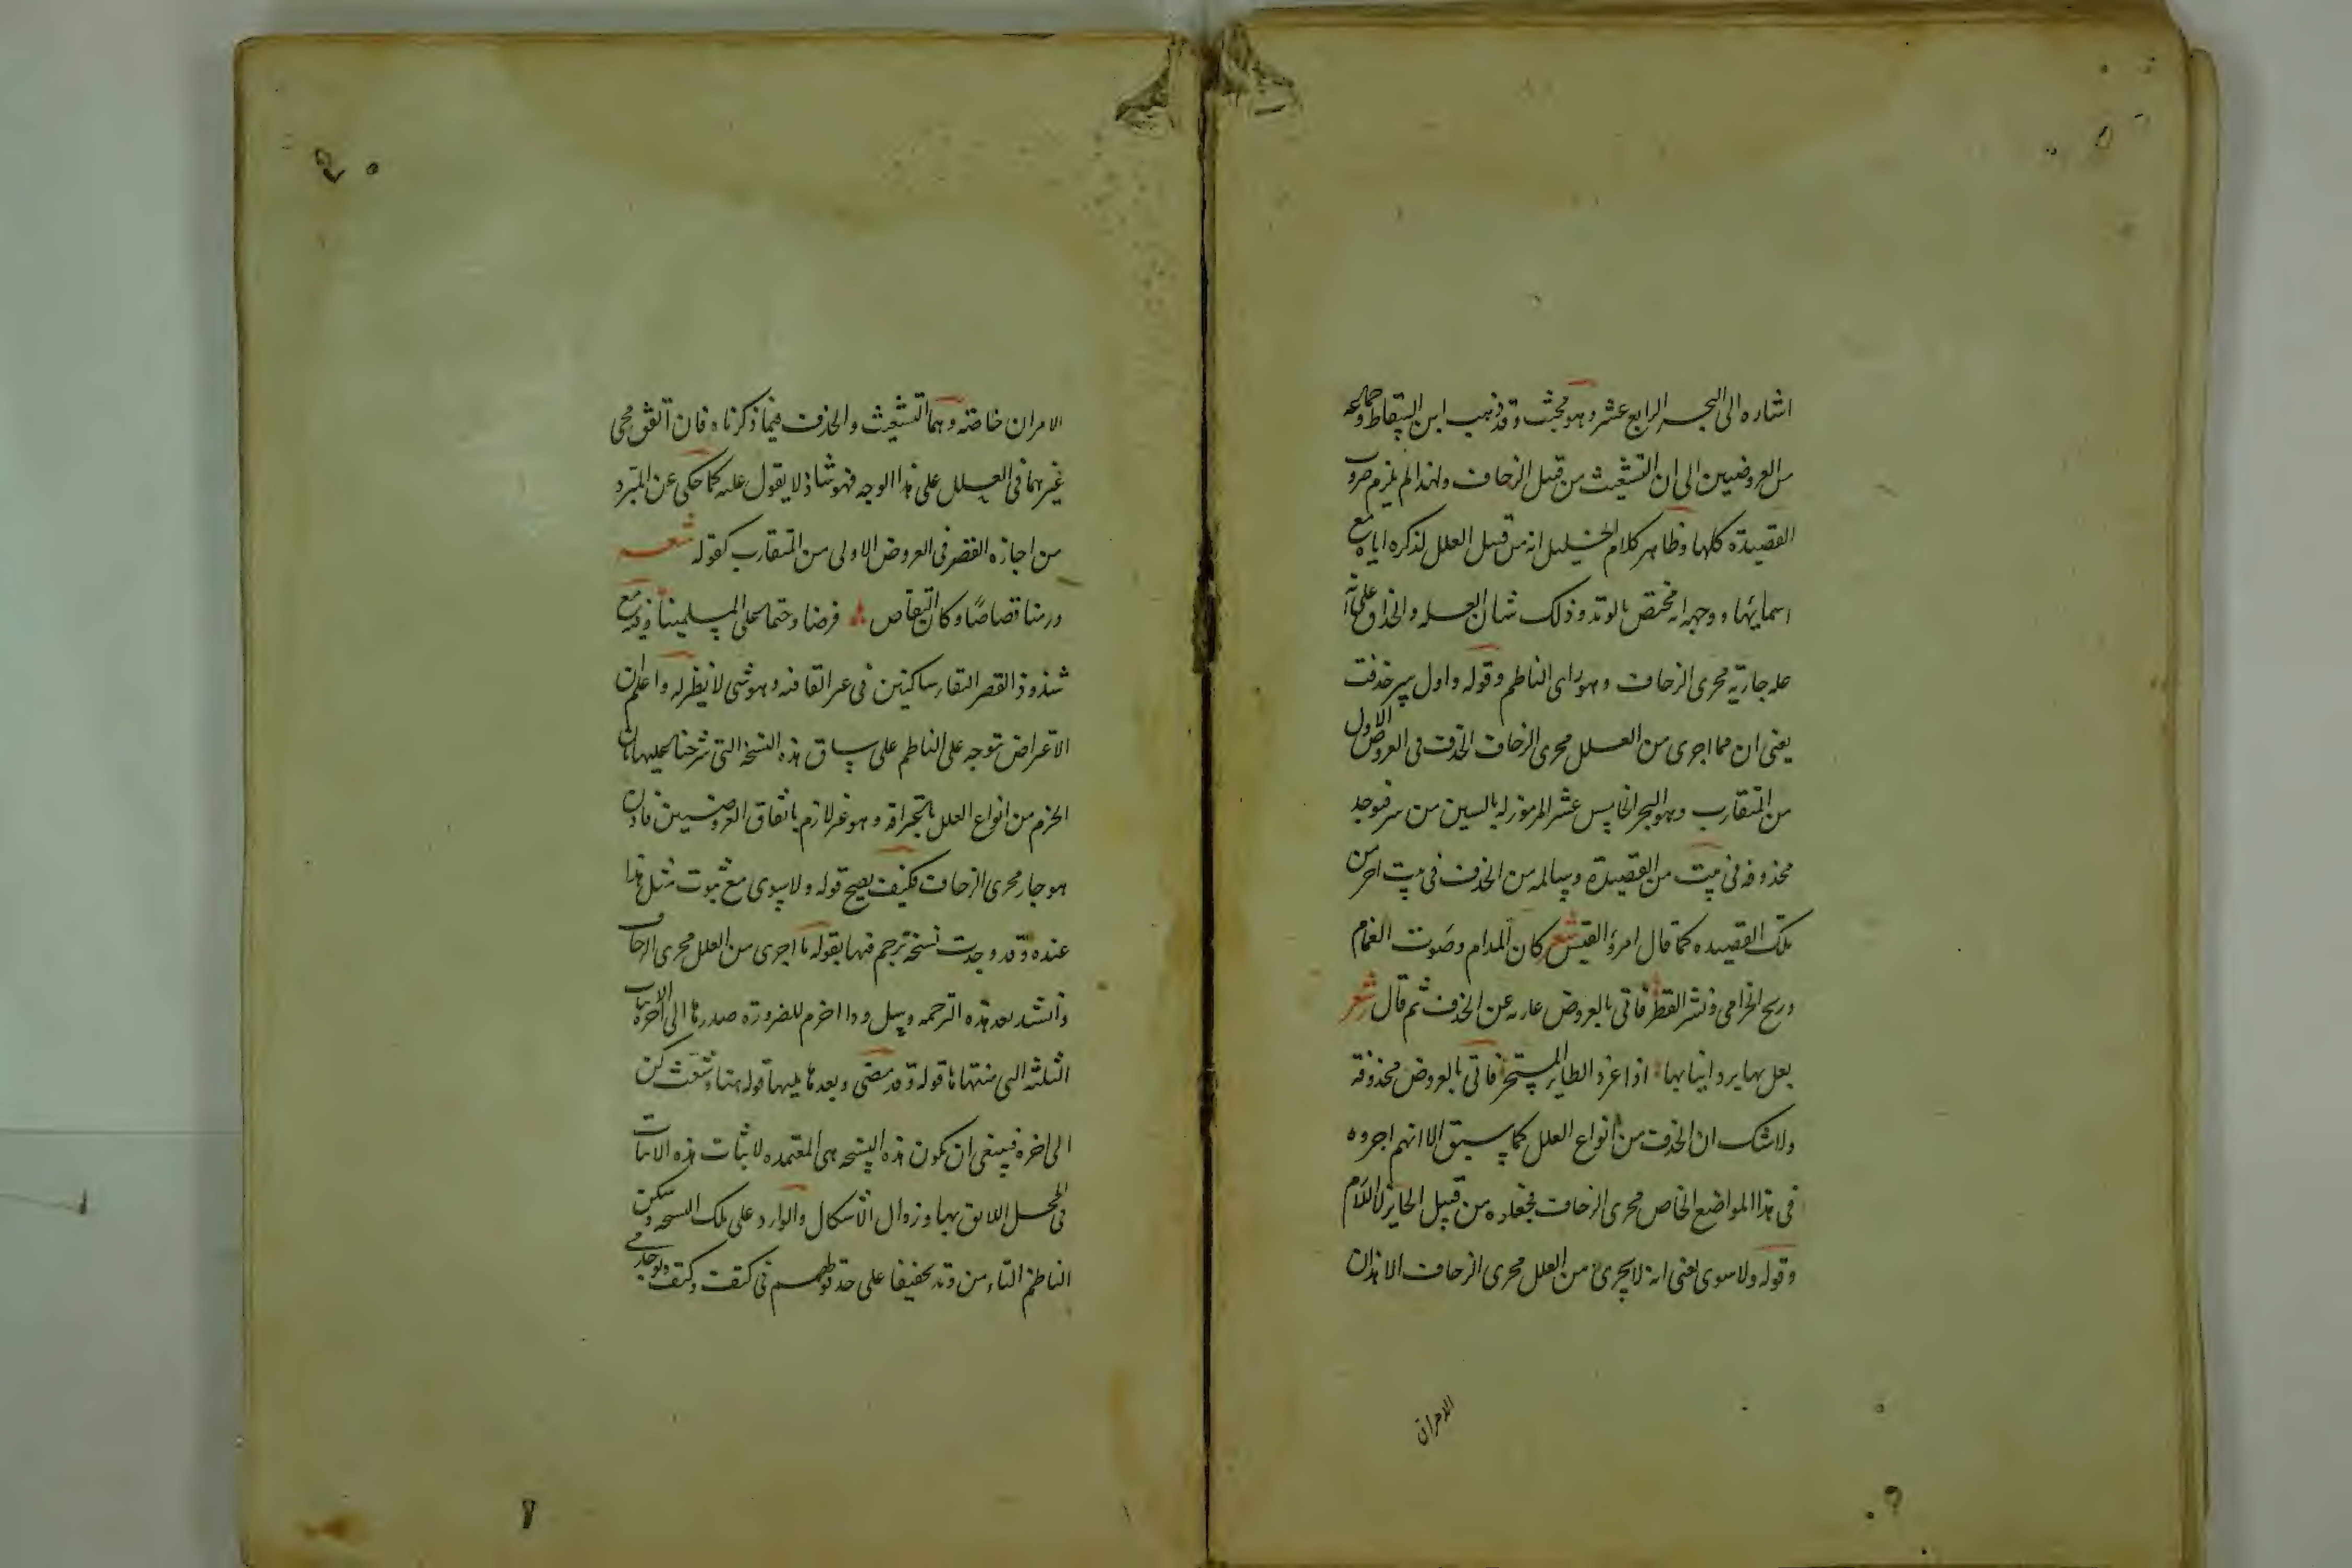 اشاره الى البحر الرابع عشر وهو مجتث وقد ذهب ابن السقاط وجماعة
من العروضيين الى ان التشعيث من قبل الزحاف ولهذا لم يلزم ضروب
القصيدة كلها وظاهر كلام الخليل انه من قبيل العلل لذكره اياه مع
اسمائها ووجهه انه مختص بالوتد وذلك شان العله والحذاق على انه
عله جاريه مجرى الزحاف وهو راى الناظم وقوله واول سر حذفت
يعنى ان مما اجرى من العلل مجرى الزحاف الحذف فى العروض الاولى
من المتقارب وهو البحر الخامس عشر المرموز له بالسين من سر فتوجد
محذوفه فى بيت من القصيدة وسالمه من الحذف فى بيت اخر من
تلك القصيده كما قال امرؤ القيس شعر كان المدام وصوت الغمام
وريح الخزامى ونشر القطر فاتى بالعروض عاريه عن الحذف ثم قال شعر
يعل بها برد انيابها اذا غرد الطاير المستحر فاتى بالعروض محذوفة
ولا شك ان الحذف من انواع العلل كما سبق الا انهم اجروه
فى هذا المواضع الخاص مجرى الزحاف فجعلوه من قبيل الجايز لا اللازم
وقوله ولا سوى يعنى انه لا يجرى من العلل مجرى الزحاف الا هذان
الامران
الامران خاصة وهما التشعيث والحذف فيما ذكرناه فان اتفق مجى
غيرهما فى العلل على هذا الوجه فهو شاذ لا يقول عليه كما حكى عن المبرد
من اجازه القصر فى العروض الاولى من المتقارب كقوله شعر
ورمنا قصاصًا وكان التقاص فرضا وحتما على المسلمينا وفيه مع
شذوذ القصر التقا ساكنين فى غير القافيه وهو شى لا نظير له واعلم ان
الاعتراض توجه على الناظم على سياق هذه النسخه التى شرحنا عليها بان
الخزم من انواع العلل وهو غير لازم باتفاق العروضيين فاذن
هو جار مجرى الزحاف فكيف يصح قوله ولا سوى مع ثبوت مثل هذا
عنده وقد وجدت نسخه ترجم فيها بقوله ما اجرى من العلل مجرى الزحاف
وانشد بعد هذه الترجمه وسل ودا اخرم للضرورة صدرها الى اخره الابيات
الثلثه التى منتهاها قوله وقد مضى وبعدها يليها قوله هنا وشعث كن
الى اخره فينبغى ان تكون هذه النسخه هى المعتمده لاثبات هذه الابيات
فى المحل اللايق بها وزوال الاشكال والوارد على تلك النسخه وسكن
الناظم التاء من وتد تخفيفا على حد قولهم فى كتف وكتف وتوجد فى